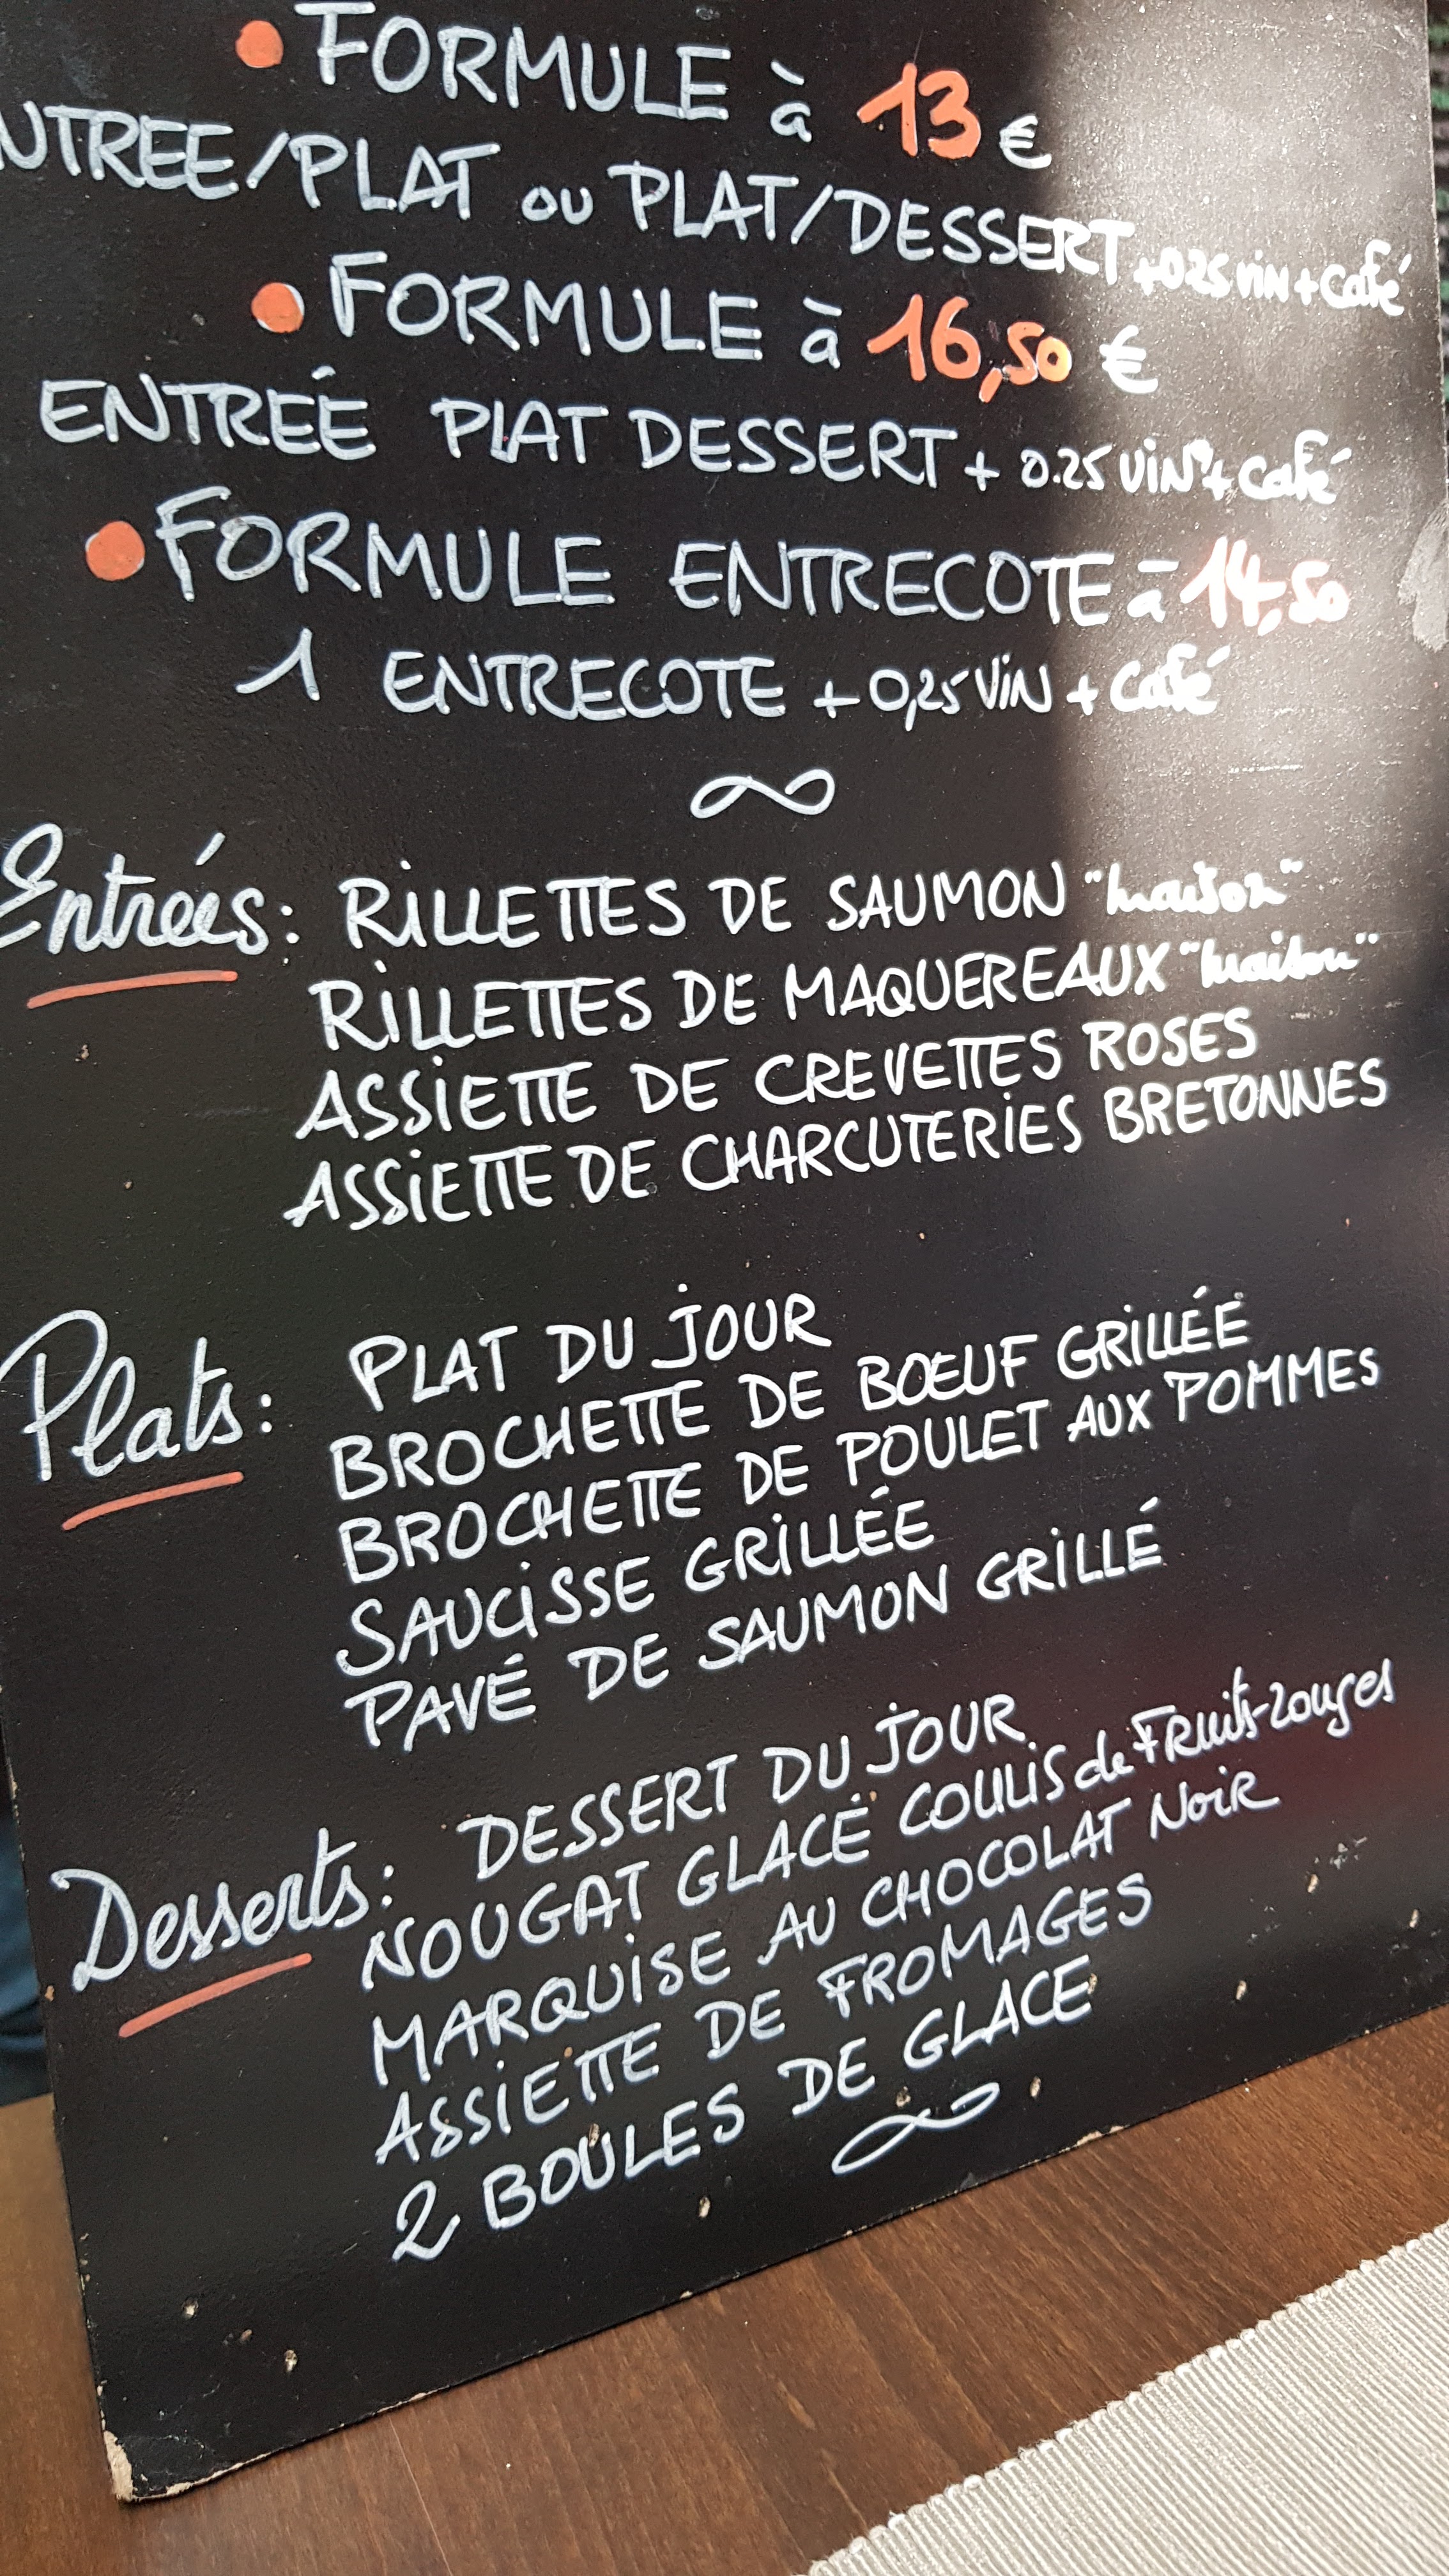 FORMULE à 13 €
NTREE/PLAT ou PLAT/DESSERT +025 viN + café
FORMULE à 16,50 €
ENTREÉ PLAT DESSERT + 0.25 ViN + café
FORMULE ENTRECOTE à 14,50
1 ENTRECOTE + 0,25 ViN + café
Entrées: RILLETTES DE SAUMON "maison"
RILLETTES DE MAQUEREAUX "maison"
ASSIETTE DE CREVETTES ROSES
ASSIETTE DE CHARCUTERIES BRETONNES
Plats: PLAT DU JOUR
BROCHETTE DE BOEUF GRILLÉE
BROCHETTE DE POULET AUX POMMES
SAUCISSE GRILLÉE
PAVÉ DE SAUMON GRILLÉ
Desserts: DESSERT DU JOUR
NOUGAT GLACÉ COULIS de FRuits-rouges
MARQUISE AU CHOCOLAT NoiR
ASSIETTE DE FROMAGES
2 BOULES DE GLACE